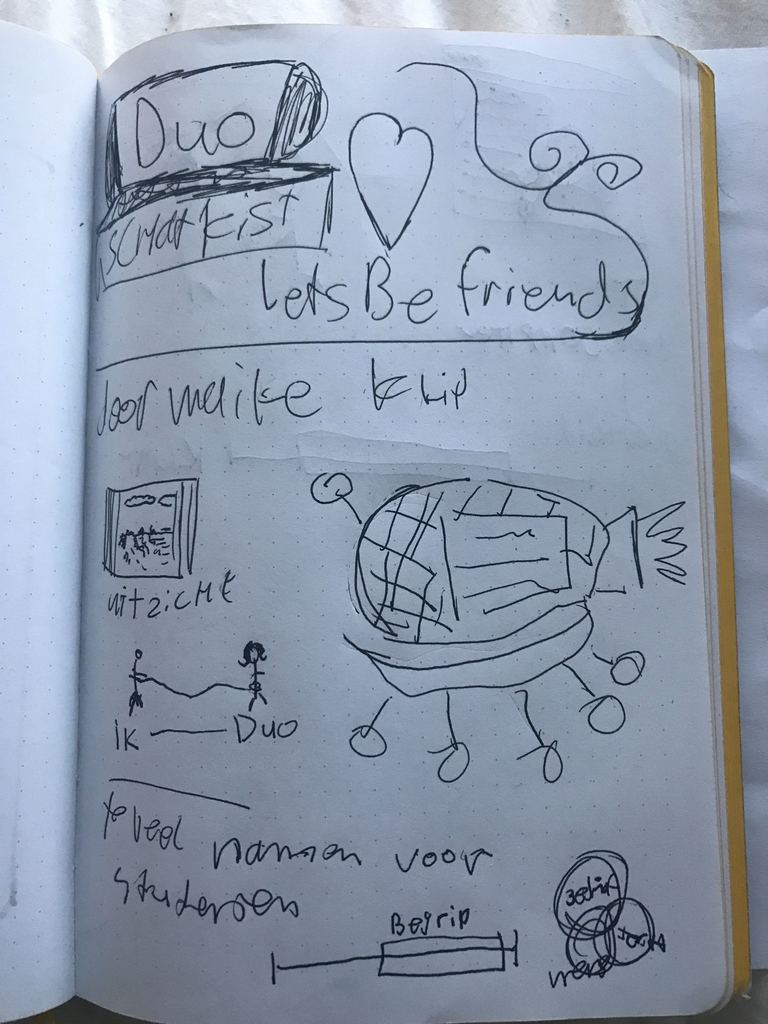 Duo
SCHAtkist
lets Be friends
door maike klip
uitzicht
ik Duo
te veel namen voor
studenten
Begrip
Bedrijf
mens